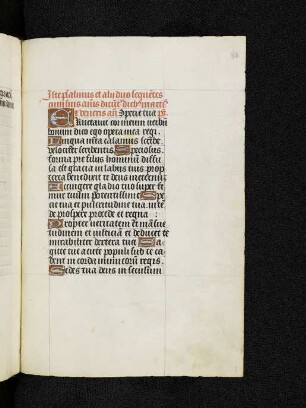 Iste psalmus et alii duo sequētes
cum suis añis dicūt̃ dieb᷒ martē
et veneris añ Specie tua ps
Eructauit cor meum verbū
bonum dico ego opera mea regi.
Lingua mea calamus scribe
velociter scribentis. Speciosus
forma pre filiis hominum diffu
sa est gracia in labiis tuis prop
terea benedixit te deus in eternū.
Accingere gladio tuo super fe
mur tuum potentissime. Spe
cie tua et pulcritudine tua inten
de prospere procede et regna
Propter veritatem et mansue
tudinem et iusticiam et deducet te
mirabiliter dextera tua. Sa
gitte tue acute populi sub te ca
dent in corda inimicorum regis.
Sedes tua deus in seculum